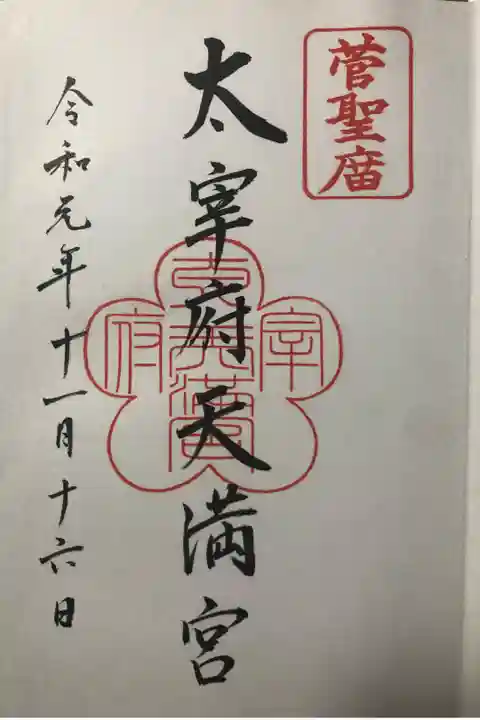 菅聖庿
太宰府天満宮
太宰府天満宮
令和元年十一月十六日